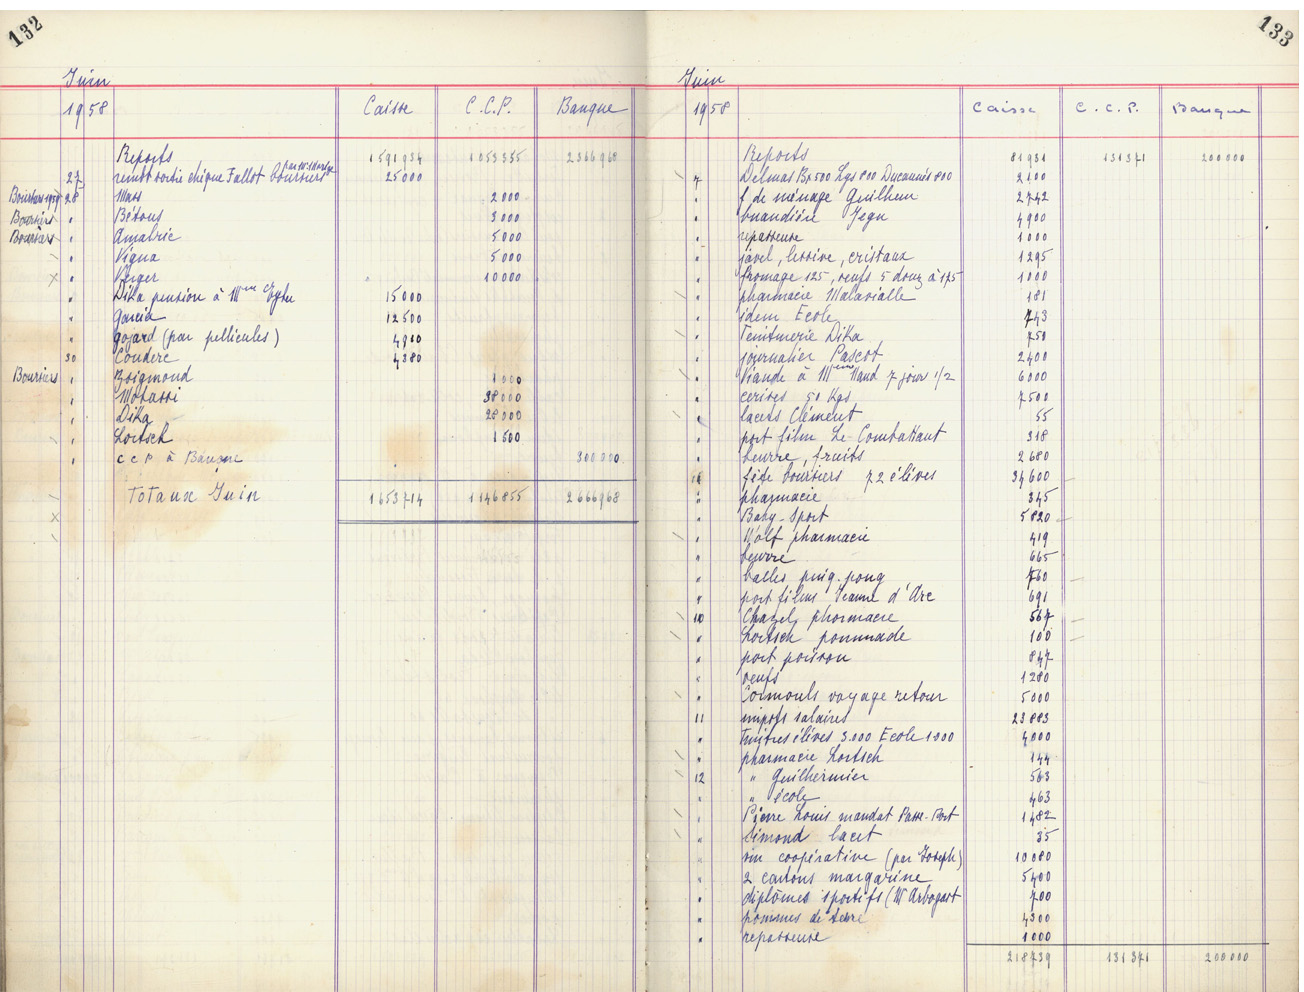 132
Juin
1958 Caisse C.C.P. Banque
Reports 1591934 1053355 2366968
27 remb sortie chèque Fallot boursiers 25000
Boursiers 1957 28 Mars 2000
Boursiers " Bétous 3000
Boursiers " Amalric 5000
" Vigna 5000
" Verger 10000
" Dika pension à Mme 15000
" Garcia 12500
" gojard (par pellicules) 4900
30 Couderc 4380
Boursiers " Boigmond 1000
" Motassi 38000
" Dika 28000
" Loetsch 1500
" CCP à Banque 300000
Totaux Juin 1653714 1146855 2666968
133
Juin
1958 Caisse C.C.P. Banque
Reports 81931 131371 200000
7 Delmas Bx 500 Lgs 800 Ducaunès 800 2100
" f. de ménage Guilhem 2742
" buandière Jegu 4900
" repasseuse 1000
" javel, lessive, cristaux 1295
" fromage 125, oeufs 5 douz à 175 1000
" pharmacie Malavialle 181
" idem Ecole 743
" Teinturerie Dika 750
" journalier Pascot 2400
" Viande à Mme Naud 7 jours 1/2 6000
" cerises 50 Kgs 7500
" lacets Clément 55
" port film Le Combattant 318
" beurre, fruits 2680
fête boursiers 72 élèves 34600
" pharmacie 345
" Baby-Sport 5820
" Wolf pharmacie 419
" beurre 665
" balles ping-pong 760
" port films Jeanne d'Arc 691
10 Chazel, pharmacie 567
" Loetsch pommade 100
" port poisson 847
" oeufs 1280
" Cormouls voyage retour 5000
11 impots salaires 23883
" Timbres élèves 3.000 Ecole 1000 4000
" pharmacie Loetsch 144
12 " Guilhermier 563
" " école 463
" Pierre Louis mandat Passe-Port 1482
" Simond lacet 35
" vin coopérative (par Joseph) 10080
" 2 cartons margarine 5400
" diplômes sportifs (Mr Arbogast 700
" pommes de terre 4300
" repasseuse 1000
218739 131371 200000